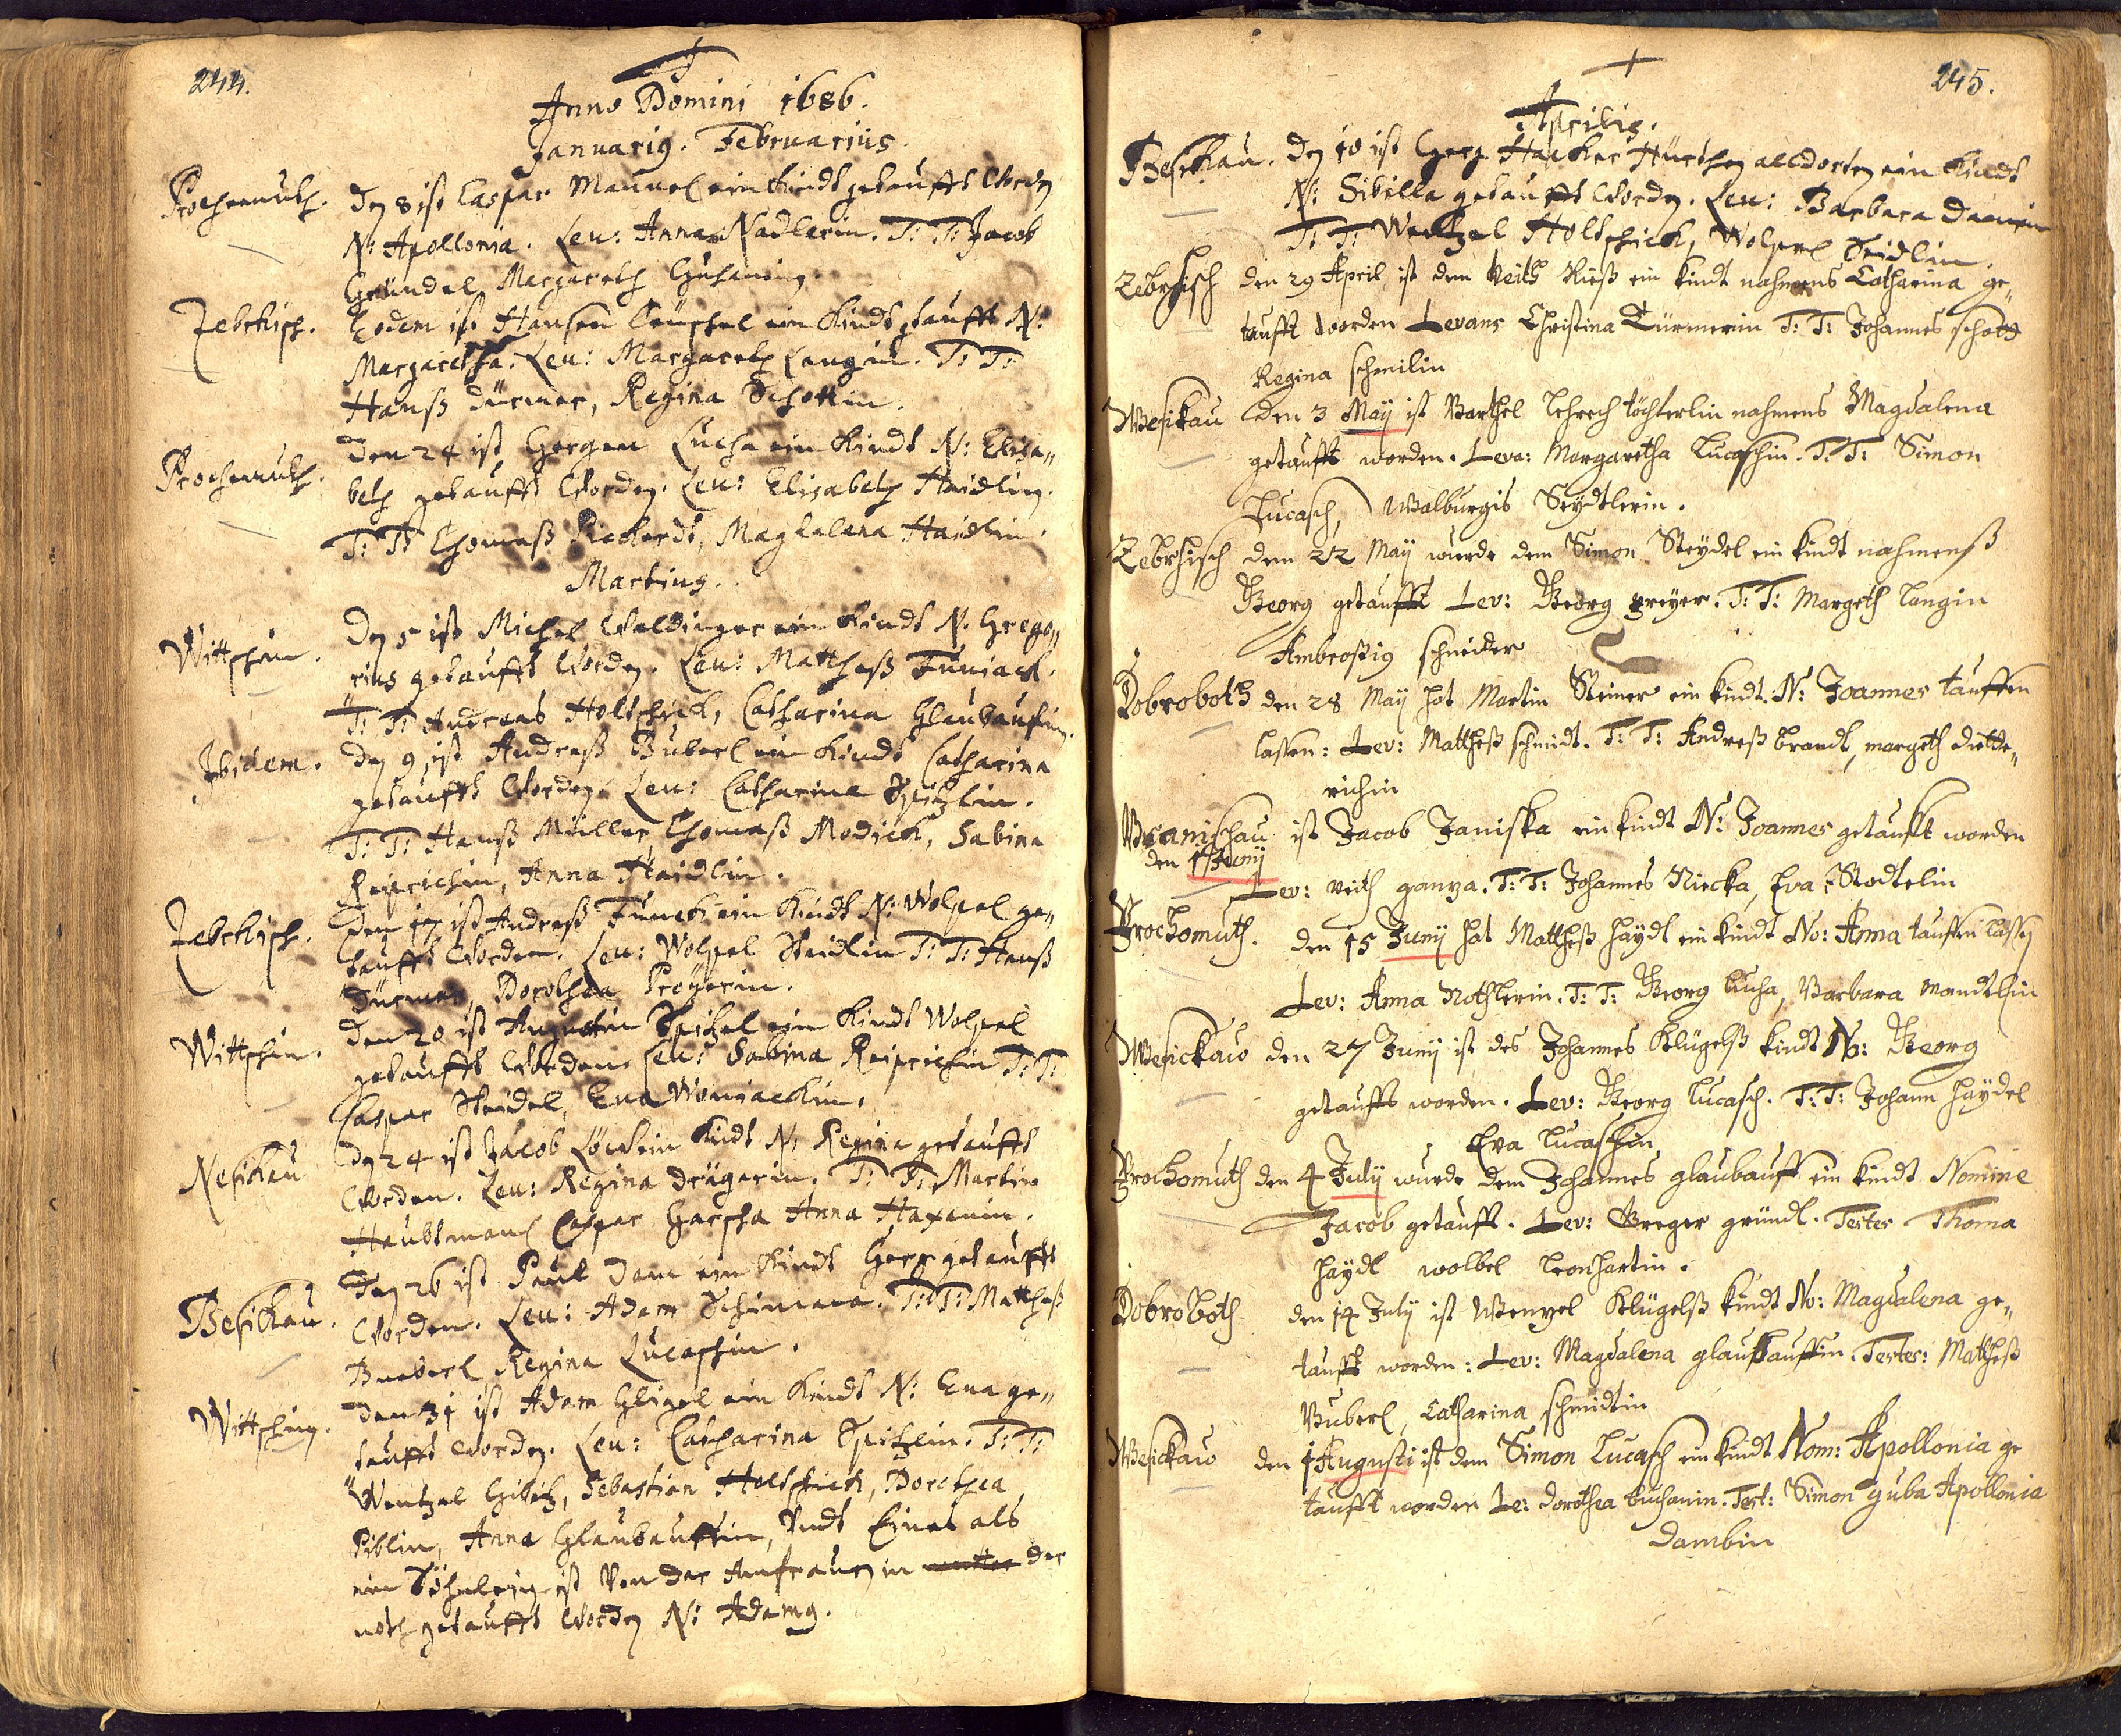 244.
Anno Domini 1686.
Januarig. Februarius.
Prochomuth. Den 8 ist Caspar Mannel ein Kindt getaufft worden
N: Apollonia. Leu: Anna Nadlerin. T: T: Jacob
Gründel, Margareth
Zebrhisch. Eodem ist Hansen ein Kindt taufft N:
Margaretha. Leu: Margareth Langin. T: T:
Hanß Dürmer, Regina Schottin.
Prochomuth. Den 24 ist Gorgen Lucha ein Kindt N: Elisa„
beth getaufft worden. Leu: Elisabeth Haidlin.
T: T: Thomaß Magdalena Haidlin.
Martius.
Wittschin. Den 5 ist Michel Waldinger ein Kindt N. Grego„
rius getaufft worden. Leu: Mattheß Funiack.
T: T: Andreas Holtschick, Catharina Glaubaufin.
Ibidem. Den 9 ist Andreß Buberl ein Kindt Catharina
getaufft worden. Leu: Catharina Spitzlin.
T: T: Hanß Müller, Thomaß Modick, Sabina
Reiprichin, Anna Haidlin.
Zebrhisch. Den 17 ist Andreß Funck ein Kindt N: Wolpel ge„
taufft worden. Leu: Wolpel Haidlin T: T: Hanß
Dürmer, Dorothea Pröyerin.
Wittschin. Den 20 ist Augustin Spitzel ein Kindt Wolpel
getaufft worden. Leu: Sabina Reiprichin T: T:
Caspar Haidel, Eua Woniackin.
Nesikau Den 24 ist Jacob ein Kindt N: Regina getaufft
worden. Leu: Regina Drägerin. T: T: Martin
Haubtmanl Caspar Garscha Anna Haxenin.
Besikau. Den 26 ist Paul Dam ein Kindt Gerg getaufft
worden. Leu: Adam Schimana. T: T: Mattheß
Bueberl Regina Lucaschin.
Wittschin. Den 31 ist Adam Gligel ein Kindt N: Eua ge„
taufft worden. Leu: Catharina Spitzlin. T: T:
Wentzel Gibitz, Sebastian Holtschick, Dorothea
Piblin, Anna Glaubauffin, Undt Eines als
ein Söhnlein ist von der Amfrauen in der
noth getaufft worden N: Adamg.
245.
Aprilis.
Besikau. Den 10 ist Gerg Hacker Hürthen alldorten ein Kindt
N: Sibilla getaufft worden. Leu: Barbara Damin
T: T: Wentzel Holtschick, Wolperl Seidlin.
Zebrhisch den 29 April ist dem Veith Rieß ein kindt nahmens Catharina ge„
taufft worden Levans Christina Türmerin T: T: Johannes schott
Regina schmilin
Wesikau den 3 May ist Barthel lehrech töchterlin nahmens Magdalena
getaufft worden. Leva: Margaretha Lucaschin. T: T: Simon
Lucasch, Walburgis Seydtlerin.
Zebrhisch den 22 May wurde dem Simon Steydel ein kindt nahmenß
Georg getaufft Lev: Georg preyer. T: T: Margeth langin
Ambrosig schneider
Dobroboth den 28 May hat Martin Steiner ein kindt. N: Joannes tauffen
lassen: Lev: Mattheß schmidt. T: T: Andreß brandl, margeth diette„
richin
Branischau den 1 Juny ist Jacob Janiska ein kindt N: Joannes getaufft worden
Lev: veith ganza. T: T: Johannes Niecka, Eva Stodtelin
Prochomuth. den 15 Juny hat Mattheß haydl ein kindt No: Anna tauffen lassen
Lev: Anna Nothlerin. T: T: Georg lucha, Barbara mandlhin
Wesickaw den 27 Juny ist des Johannes Klügelß kindt N: Georg
getaufft worden. Lev: Georg Lucasch. T: T: Johann haydel
Eva lucaschin
Prochomuth den 4 July wurde dem Johannes glaubauff ein kindt Nomine
Jacob getaufft. Lev: Greger gründl. Testes Thoma
haydl wolbel leonhartin.
Dobroboth den 14 July ist Wenzel Klügelß kindt No: Magdalena ge„
taufft worden: Lev: Magdalena glaubauffin. Testes: Mattheß
Buberl, Catharina schmidtin
Wesickaw den 1 Augusti ist dem Simon Lucasch ein kindt Nom: Apollonia ge
taufft worden Le: dorothea luchanin. Test: Simon guba Apollonia
dambin